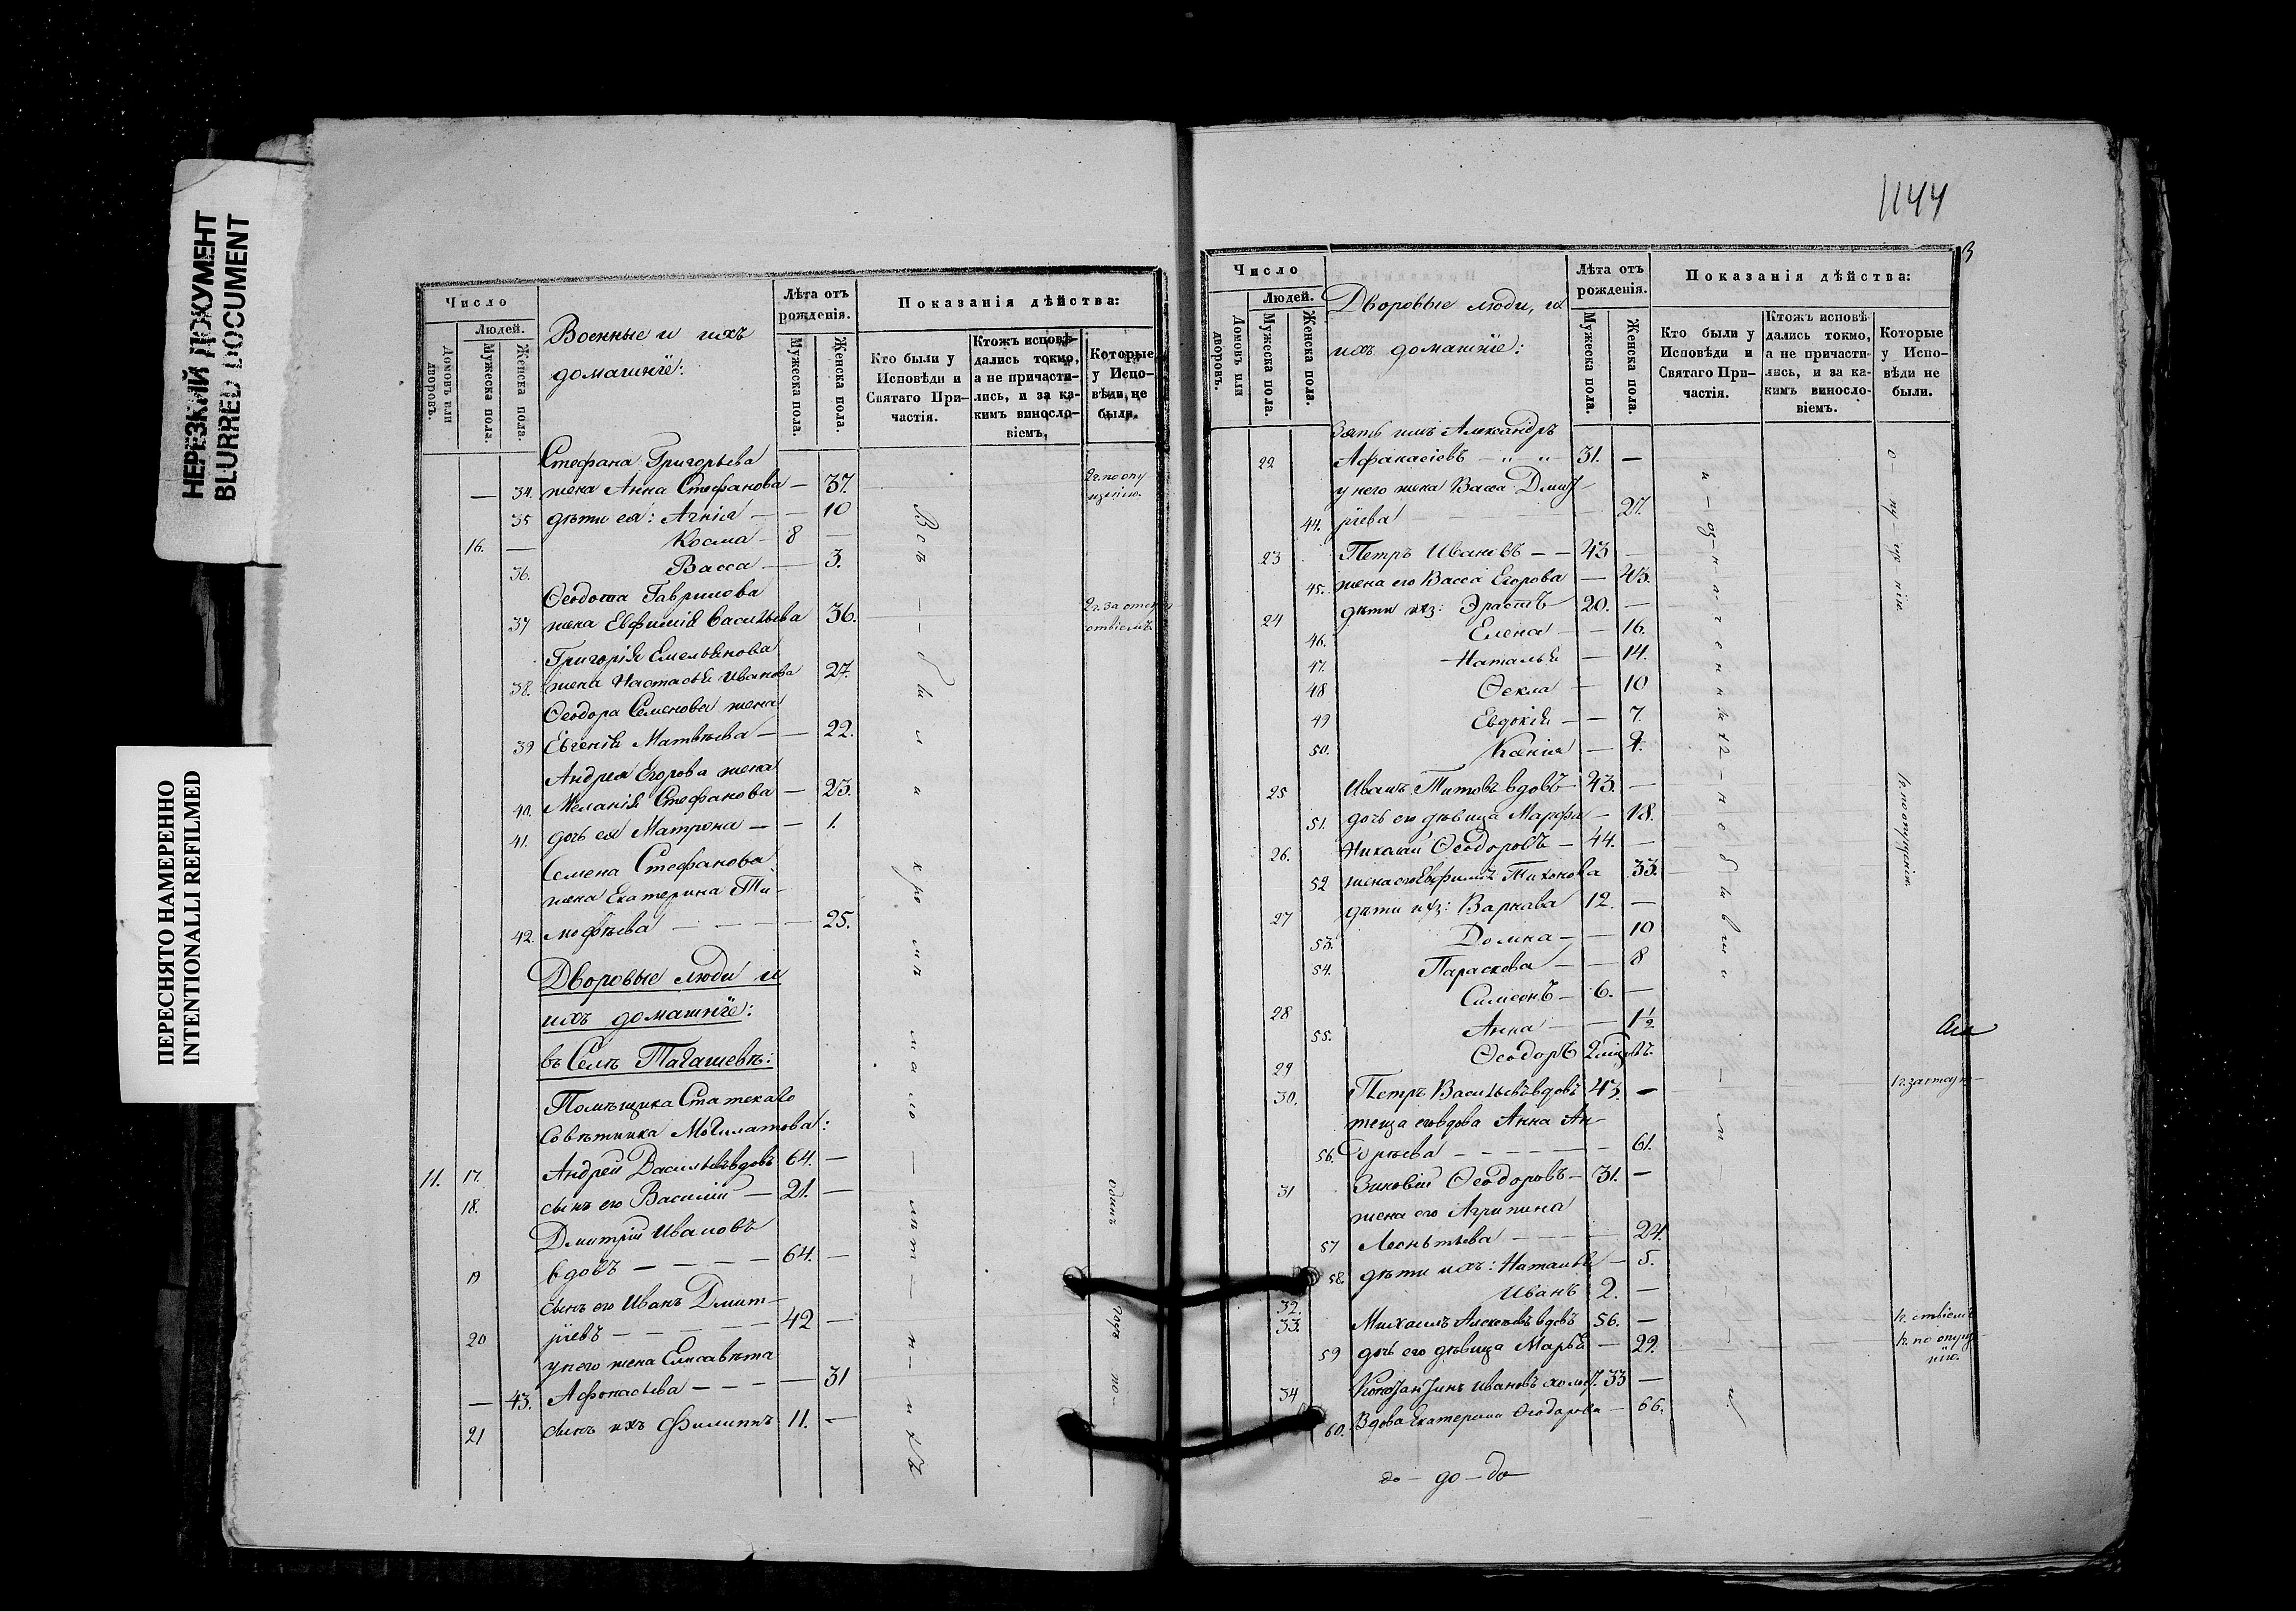 НЕРЕЗКИЙ ДОКУМЕНТ
BLURRED DOCUMENT
ПЕРЕСНЯТО НАМЕРЕННО
INTENTIONALLI REFILMED
Число
Людей.
Домовъ или дворовъ.
Мужеска пола.
Женска пола.
Военные и ихъ
домашніе:
Лѣта отъ рожденія.
Мужеска пола.
Женска пола.
Показанія дѣйства:
Кто были у Исповѣди и Святаго При-частія.
Ктожъ исповѣ-дались токмо, а не причасти-лись, и за ка-кимъ виносло-віемъ.
Которые у Испо-вѣди не были.
Стефана Григорьева
— 34. жена Анна Стефанова — 37. 2 г. по опу
щенію.
35 дѣти ея: Агнія — — 10
16. — Косма — 8 —
36. Васса — 3.
Ѳеодота Гаврилова
37 жена Евфимія Васильева 36. 2 г. за
Григорія Емельянова
38. жена Настасья Иванова 27.
Ѳеодора Семенова жена
39 Евгенія Матвѣева — — 22.
Андрея Егорова жена
40. Меланія Стефанова — 23.
41. дочь ея Матрона — — 1.
Семена Стефанова
жена Екатерина Ти-
42. моѳѣева — — — 25.
Дворовые люди и
ихъ домашніе:
въ Селѣ Тагашевѣ:
Помѣщика Статскаго
Совѣтника
11. 17. Андрей Васильевъ вдовъ 64. —
18. сынъ его Василій — 21. —
Дмитрій Ивановъ
19 вдовъ — — — — 64. —
сынъ его Иванъ Дмит-
20 ріевъ — — — — — 42 —
у него жена Елисавета
— 43. Афонасьева — — — — 31
21 сынъ ихъ Филиппъ 11. —
Всѣ — были
1144
3
Число
Людей.
Домовъ или дворовъ.
Мужеска пола.
Женска пола.
Дворовые люди, и
ихъ домашніе:
Лѣта отъ рожденія.
Мужеска пола.
Женска пола.
Показанія дѣйства:
Кто были у Исповѣди и Святаго При-частія.
Ктожъ исповѣ-дались токмо, а не причасти-лись, и за ка-кимъ виносло-віемъ.
Которые у Испо-вѣди не были.
Зять ихъ Александръ
22 Афанасіевъ — „ „ 31. —
у него жена Васса Дмит-
44. ріева — 27.
23 Петръ Ивановъ — — 43 —
45. жена его Васса Егорова — 43.
24 дѣти ихъ: Эрастъ 20. —
46. Елена — — 16.
47. Наталья — 14.
48 Ѳекла — 10
49 Евдокія — — 7.
50. Ксенія — 4.
25 Иванъ Титовъ вдовъ 43. —
51. дочь его дѣвица Марфа — 18.
26. Николай Ѳеодоровъ — 44. —
52 жена его Евфимія Тихонова 33.
27 дѣти ихъ: Варнава 12. —
53. Домна — — 10
54. Параскева — — 8
28 Симеонъ — 6. —
55. Анна — — 1½
29 Ѳеодоръ 2 мѣсяцовъ.
30. Петръ Васильевъ вдовъ 43. —
теща его вдова Анна Ан-
56. — — — — — 61.
31 Зиновій Ѳеодоровъ — 31. —
жена его Агрипина
57 Леонтьева — — — — 24.
58. дѣти ихъ: Наталья — 5.
32. Иванъ 2. —
33. Михаилъ Алексѣевъ вдовъ 56. —
59 дочь его дѣвица Марья — 29.
34 Константинъ Ивановъ холост. 33 —
60. Вдова Екатерина Ѳеодорова — 66.
1 г. по опущенію
1 г. по опущ-
нію.
до — до — до